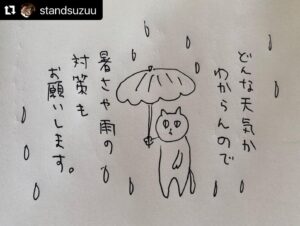 standsuzuu
どんな天気か
わからんので
暑さや雨の
対策も
お願いします。